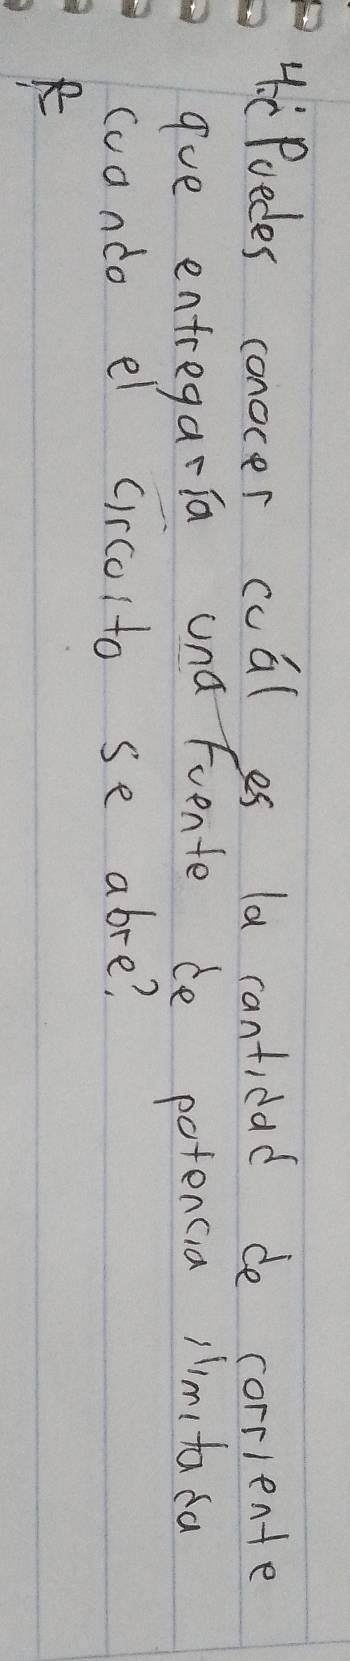 4.¿Puedes conocer cuál es la cantidad de corriente
que entregaría una fuente de potencia ilimitada
cuando el circuito se abre?
R=